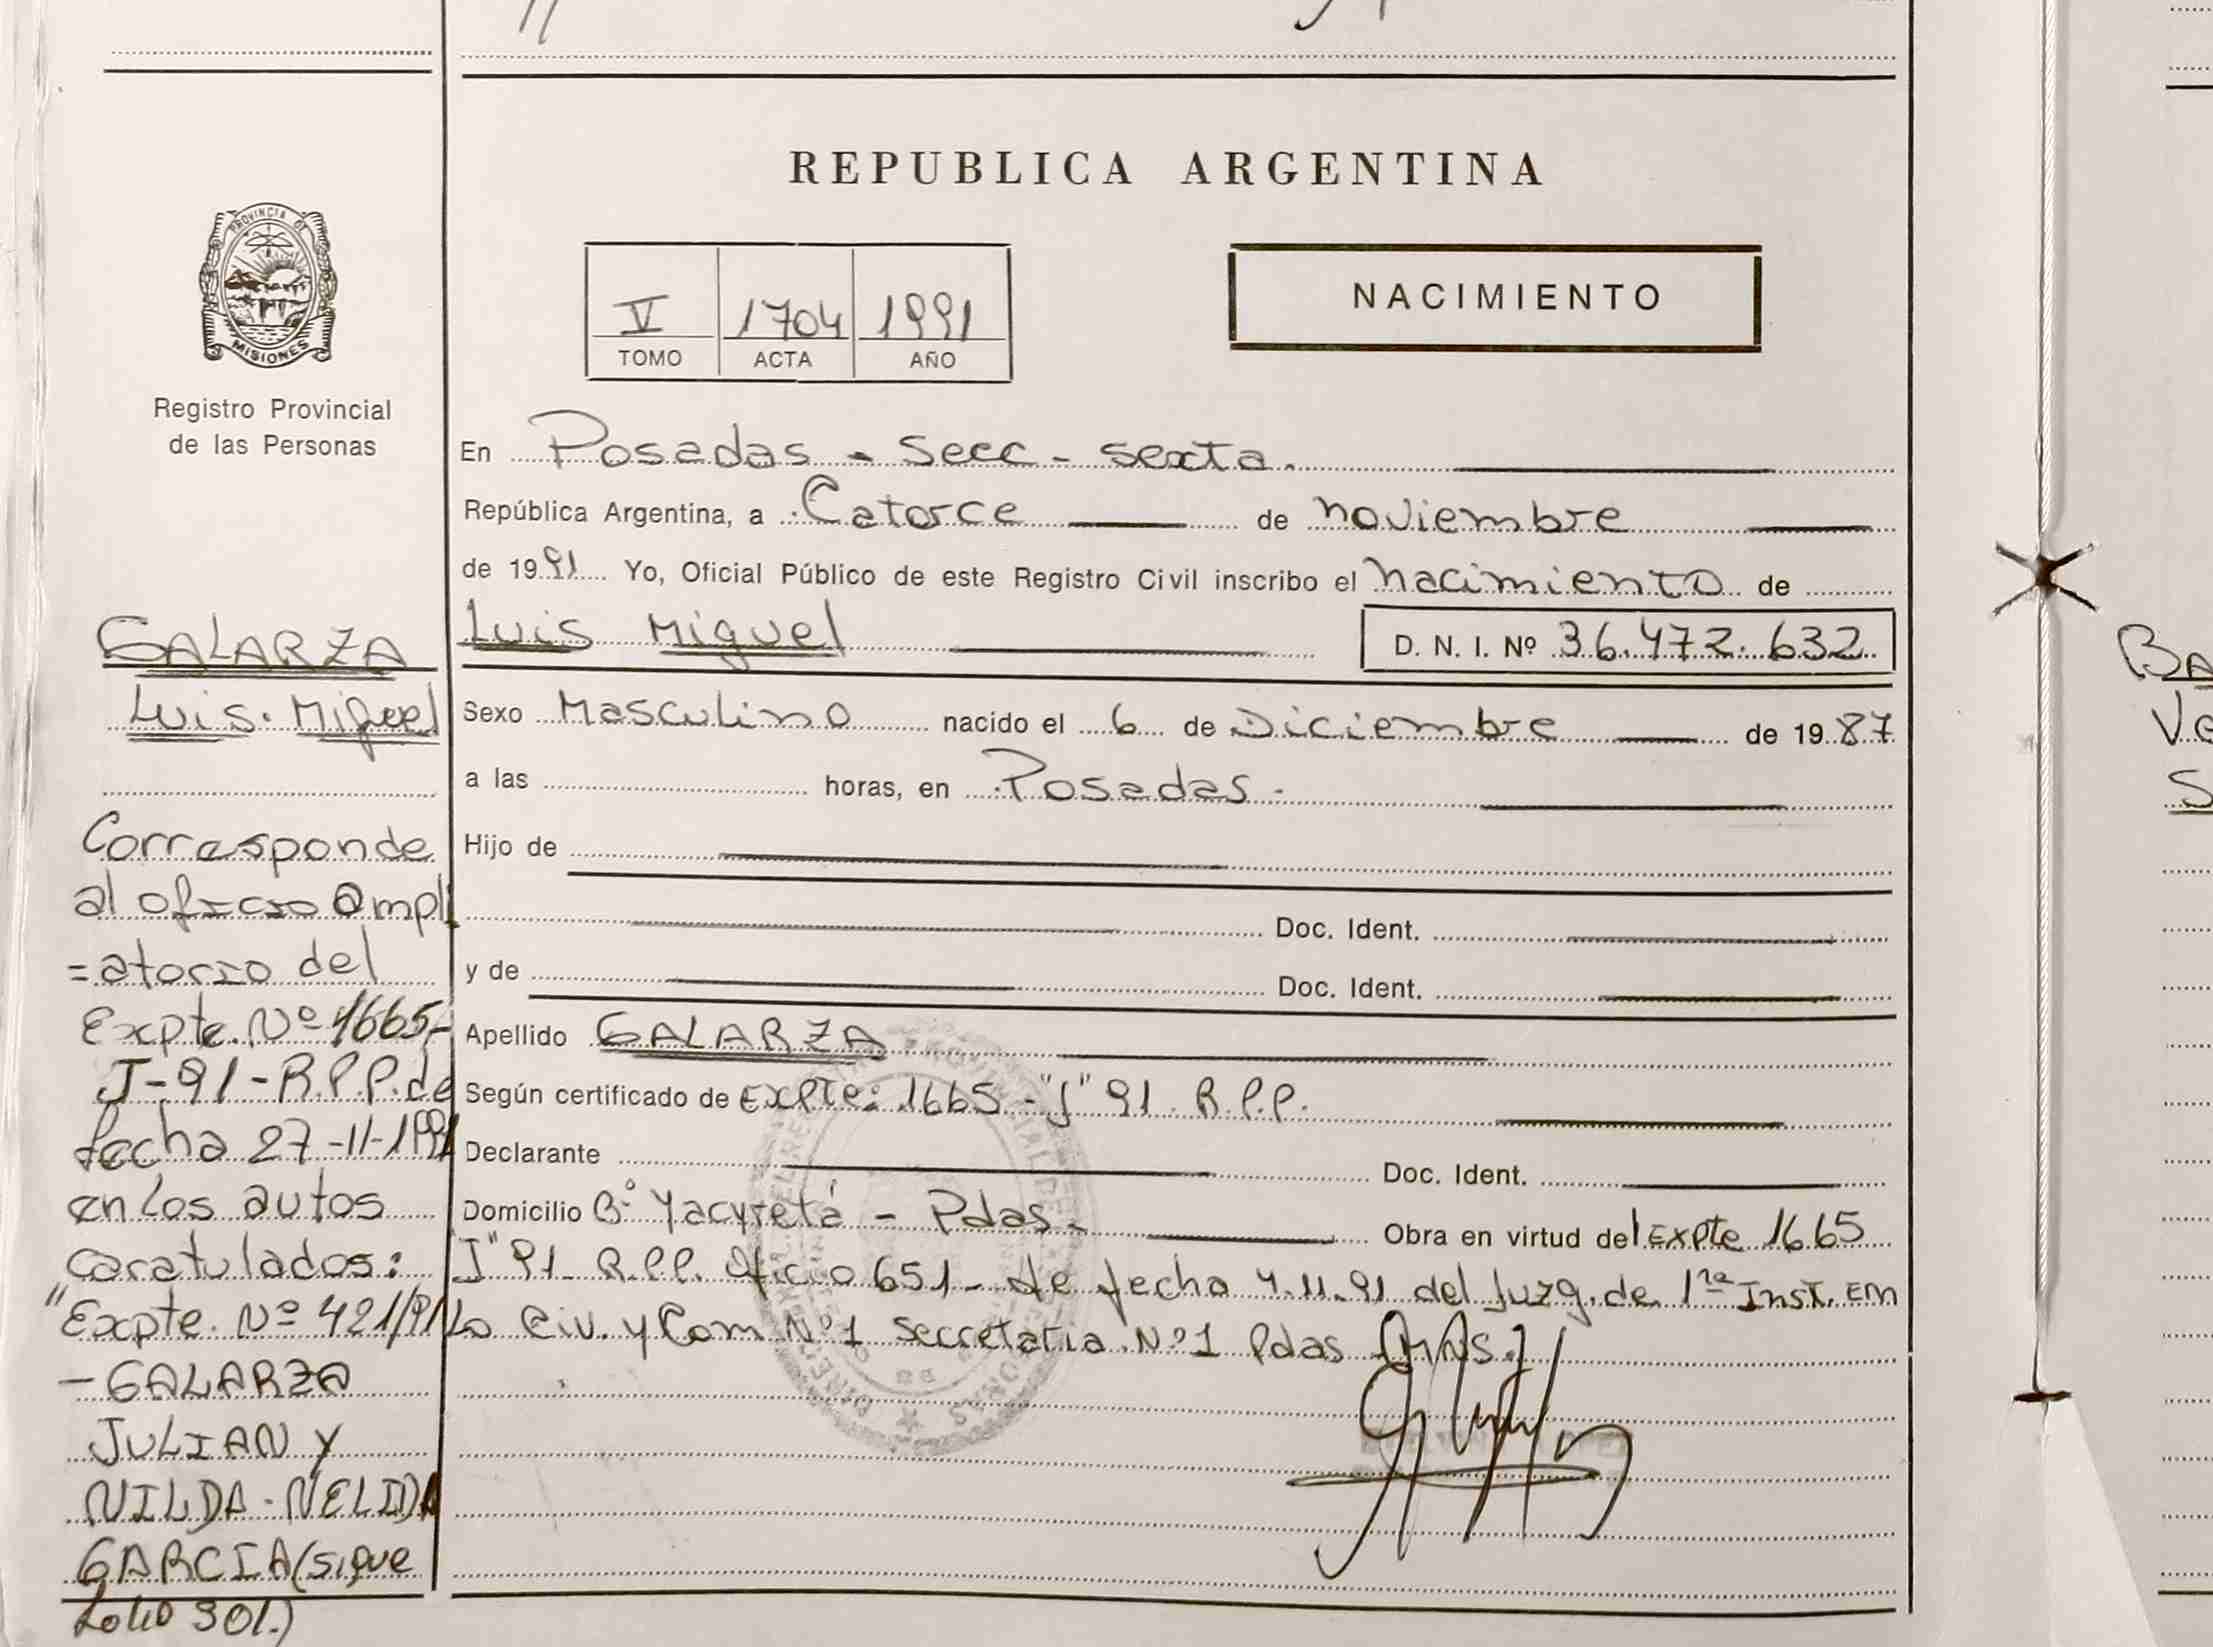 REPUBLICA ARGENTINA
PROVINCIA DE
MISIONES
Registro Provincial
de las Personas
V 1704 1991
TOMO ACTA AÑO
NACIMIENTO
En Posadas - Secc - sexta.
República Argentina, a Catorce de noviembre
de 1991 Yo, Oficial Público de este Registro Civil inscribo el nacimiento de
Luis Miguel D. N. I. Nº 36.472.632
Sexo Masculino nacido el 6 de Diciembre de 1987
a las horas, en Posadas.
Hijo de
Doc. Ident.
y de Doc. Ident.
Apellido GALARZA
Según certificado de Expte: 1665-"J" 91 R.P.P.
Declarante Doc. Ident.
Domicilio Bº Yacyretá - Pdas. Obra en virtud del Expte 1665
J" 91 R.P.P. Oficio 651- de fecha 4.11.91 del Juzg. de 1ra Inst. EM
Lo Civ. y Com Nº1 Secretaria Nº1 Pdas
GALARZA
Luis Miguel
Corresponde
al oficio ampli
=atorio del
Expte. Nº 1665-
J-91-R.P.P. de
fecha 27-11-1991
en los autos
caratulados:
"Expte. Nº 421/91
- GALARZA
JULIAN y
NILDA-NELIDA
GARCIA (sigue
folio 301.)